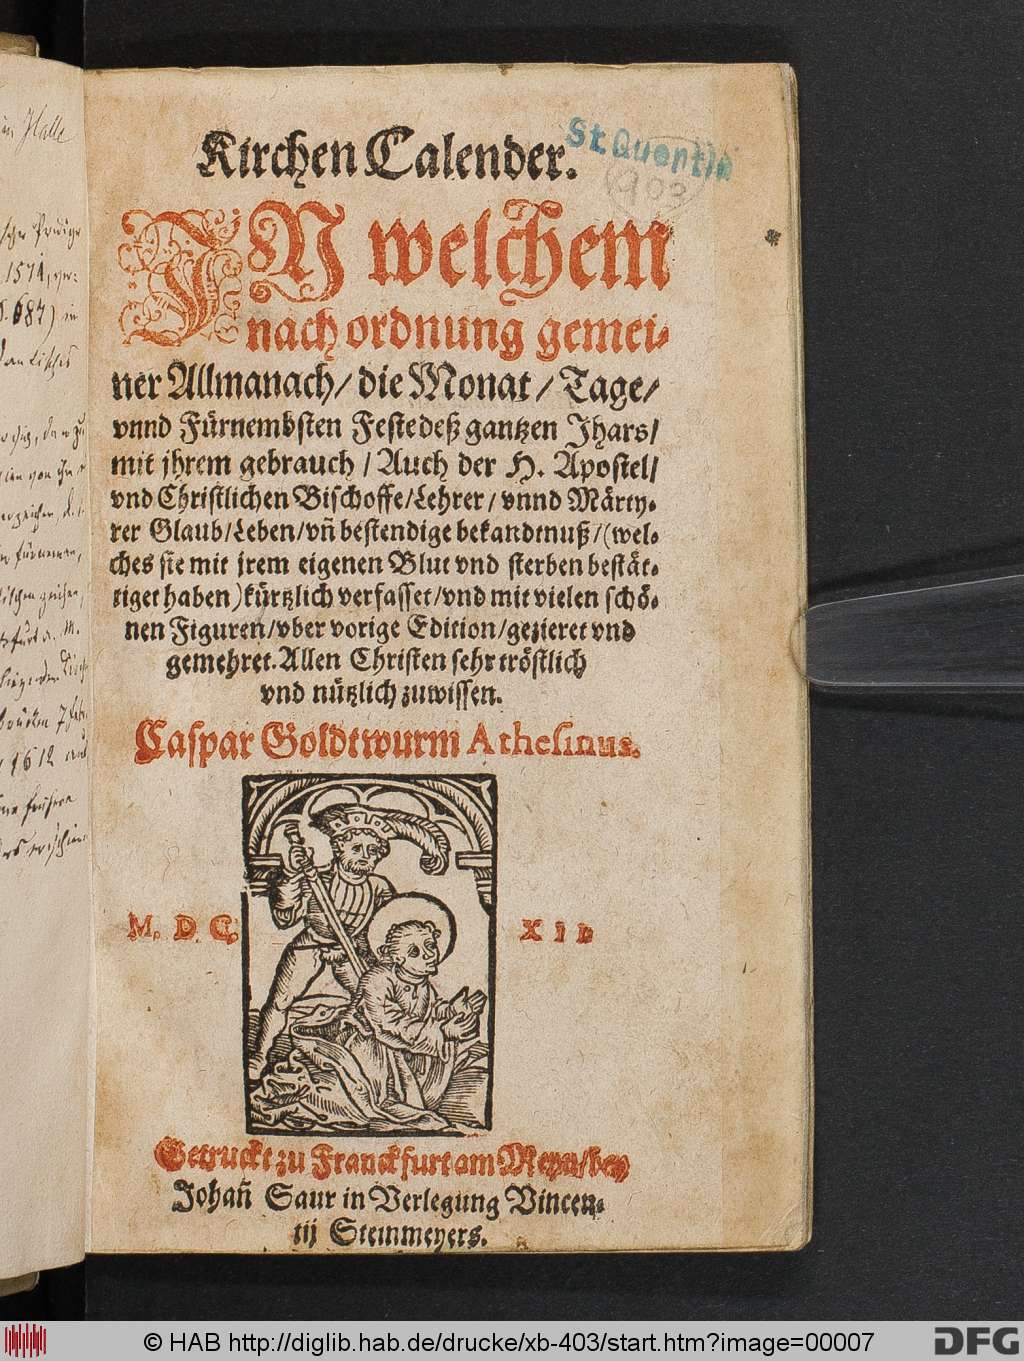 Kirchen Calender.
St. Quentin
903
IN welchem
nach ordnung gemei-
ner Allmanach/ die Monat/ Tage/
vnnd Fürnembsten Feste deß gantzen Jhars/
mit jhrem gebrauch/ Auch der H. Apostel/
vnd Christlichen Bischoffe/Lehrer/ vnnd Märty-
rer Glaub/Leben/vñ bestendige bekandtnuß/(wel-
ches sie mit jrem eigenen Blut vnd sterben bestät-
tiget haben) kürtzlich verfasset/vnd mit vielen schö-
nen Figuren/vber vorige Edition/gezieret vnd
gemehret. Allen Christen sehr tröstlich
vnd nützlich zuwissen.
Caspar Goldtwurm Athesinus.
M. D. C. XII
Getruckt zu Franckfurt am Meyn/bey
Johañ Saur in Verlegung Vincen-
tij Steinmeyers.
Halle
1571
687) in
a. M.
1612
© HAB http://diglib.hab.de/drucke/xb-403/start.htm?image=00007
DFG